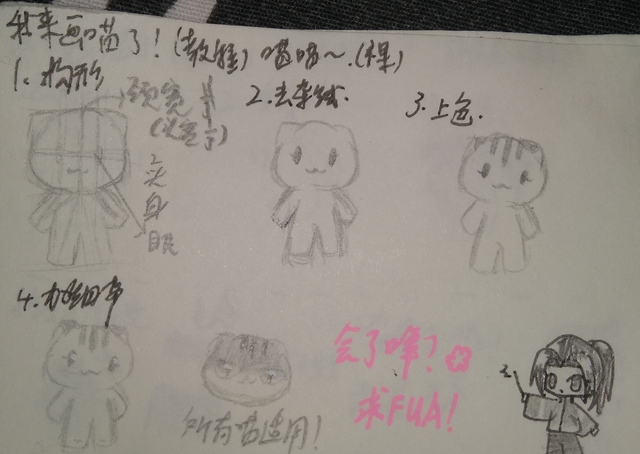 我来画喵了！(教程) 喵喵～.(裸)
1.构形
颈宽
2.去杂线.
3.上色.
头身
眼
4.加细节
会了嘛？
求FUA!
所有喵适用！